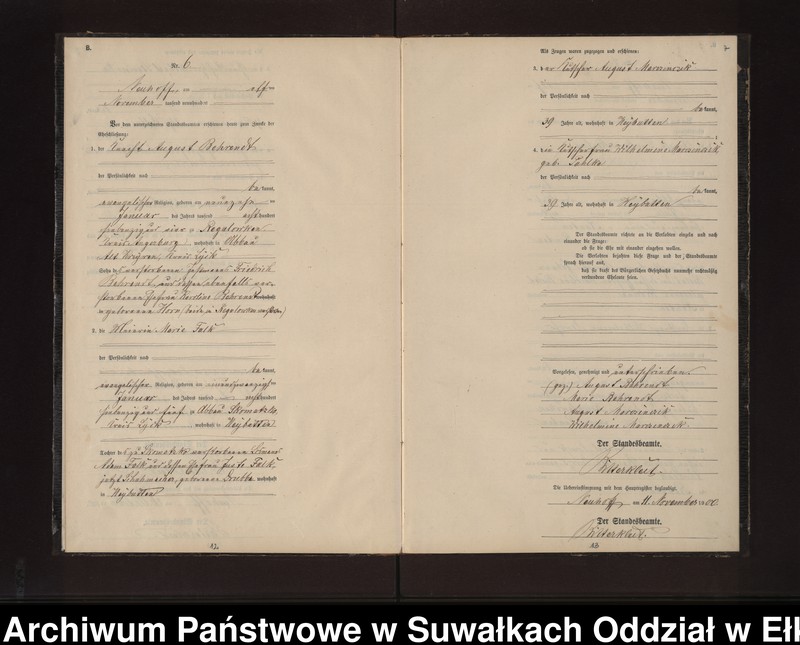 B.
Nr. 6.
Neuhoff, am elften
November tausend neunhundert
Vor dem unterzeichneten Standesbeamten erschienen heute zum Zwecke der
Eheschließung:
1. der Knecht August Behrendt
der Persönlichkeit nach
be kannt,
evangelischer Religion, geboren am neunzehnten
Januar des Jahres tausend achthundert
siebenzig und vier zu Regulowken
Kreis Angerburg, wohnhaft in Abbau
Alt Krzywen, Kreis Lyck
Sohn des verstorbenen Friedrich
Behrendt und dessen ebenfalls ver-
storbenen Ehefrau Karoline Behrendt wohnhaft
geborenen Horn
2. die Marie Falk
der Persönlichkeit nach
be kannt,
evangelischer Religion, geboren am
Januar des Jahres tausend achthundert
siebenzig und fünf zu Abbau Skomatzko,
Kreis Lyck, wohnhaft in Heybutten
Tochter des zu Skomatzko verstorbenen
Adam Falk und dessen Ehefrau Falk
jetzt Schuhmacher, geborene wohnhaft
in Heybutten
12.
Als Zeugen waren zugezogen und erschienen:
3. der Kutscher August Marzinzik
der Persönlichkeit nach
be kannt,
39 Jahre alt, wohnhaft in Heybutten
4. die Kutscherfrau Wilhelmine Marzinzik
geb. Pohlke
der Persönlichkeit nach
be kannt,
39 Jahre alt, wohnhaft in Heybutten
Der Standesbeamte richtete an die Verlobten einzeln und nach
einander die Frage:
ob sie die Ehe mit einander eingehen wollen.
Die Verlobten bejahten diese Frage und der Standesbeamte
sprach hierauf aus,
daß sie kraft des Bürgerlichen Gesetzbuchs nunmehr rechtmäßig
verbundene Eheleute seien.
Vorgelesen, genehmigt und unterschrieben
(gez.) August Behrendt
Marie Behrendt
August Marzinzik
Wilhelmine Marzinzik
Der Standesbeamte.
Bitterkleit.
Die Uebereinstimmung mit dem Hauptregister beglaubigt.
Neuhoff, am 11. November 1900
Der Standesbeamte.
Bitterkleit.
13
Archiwum Państwowe w Suwałkach Oddział w Ełk